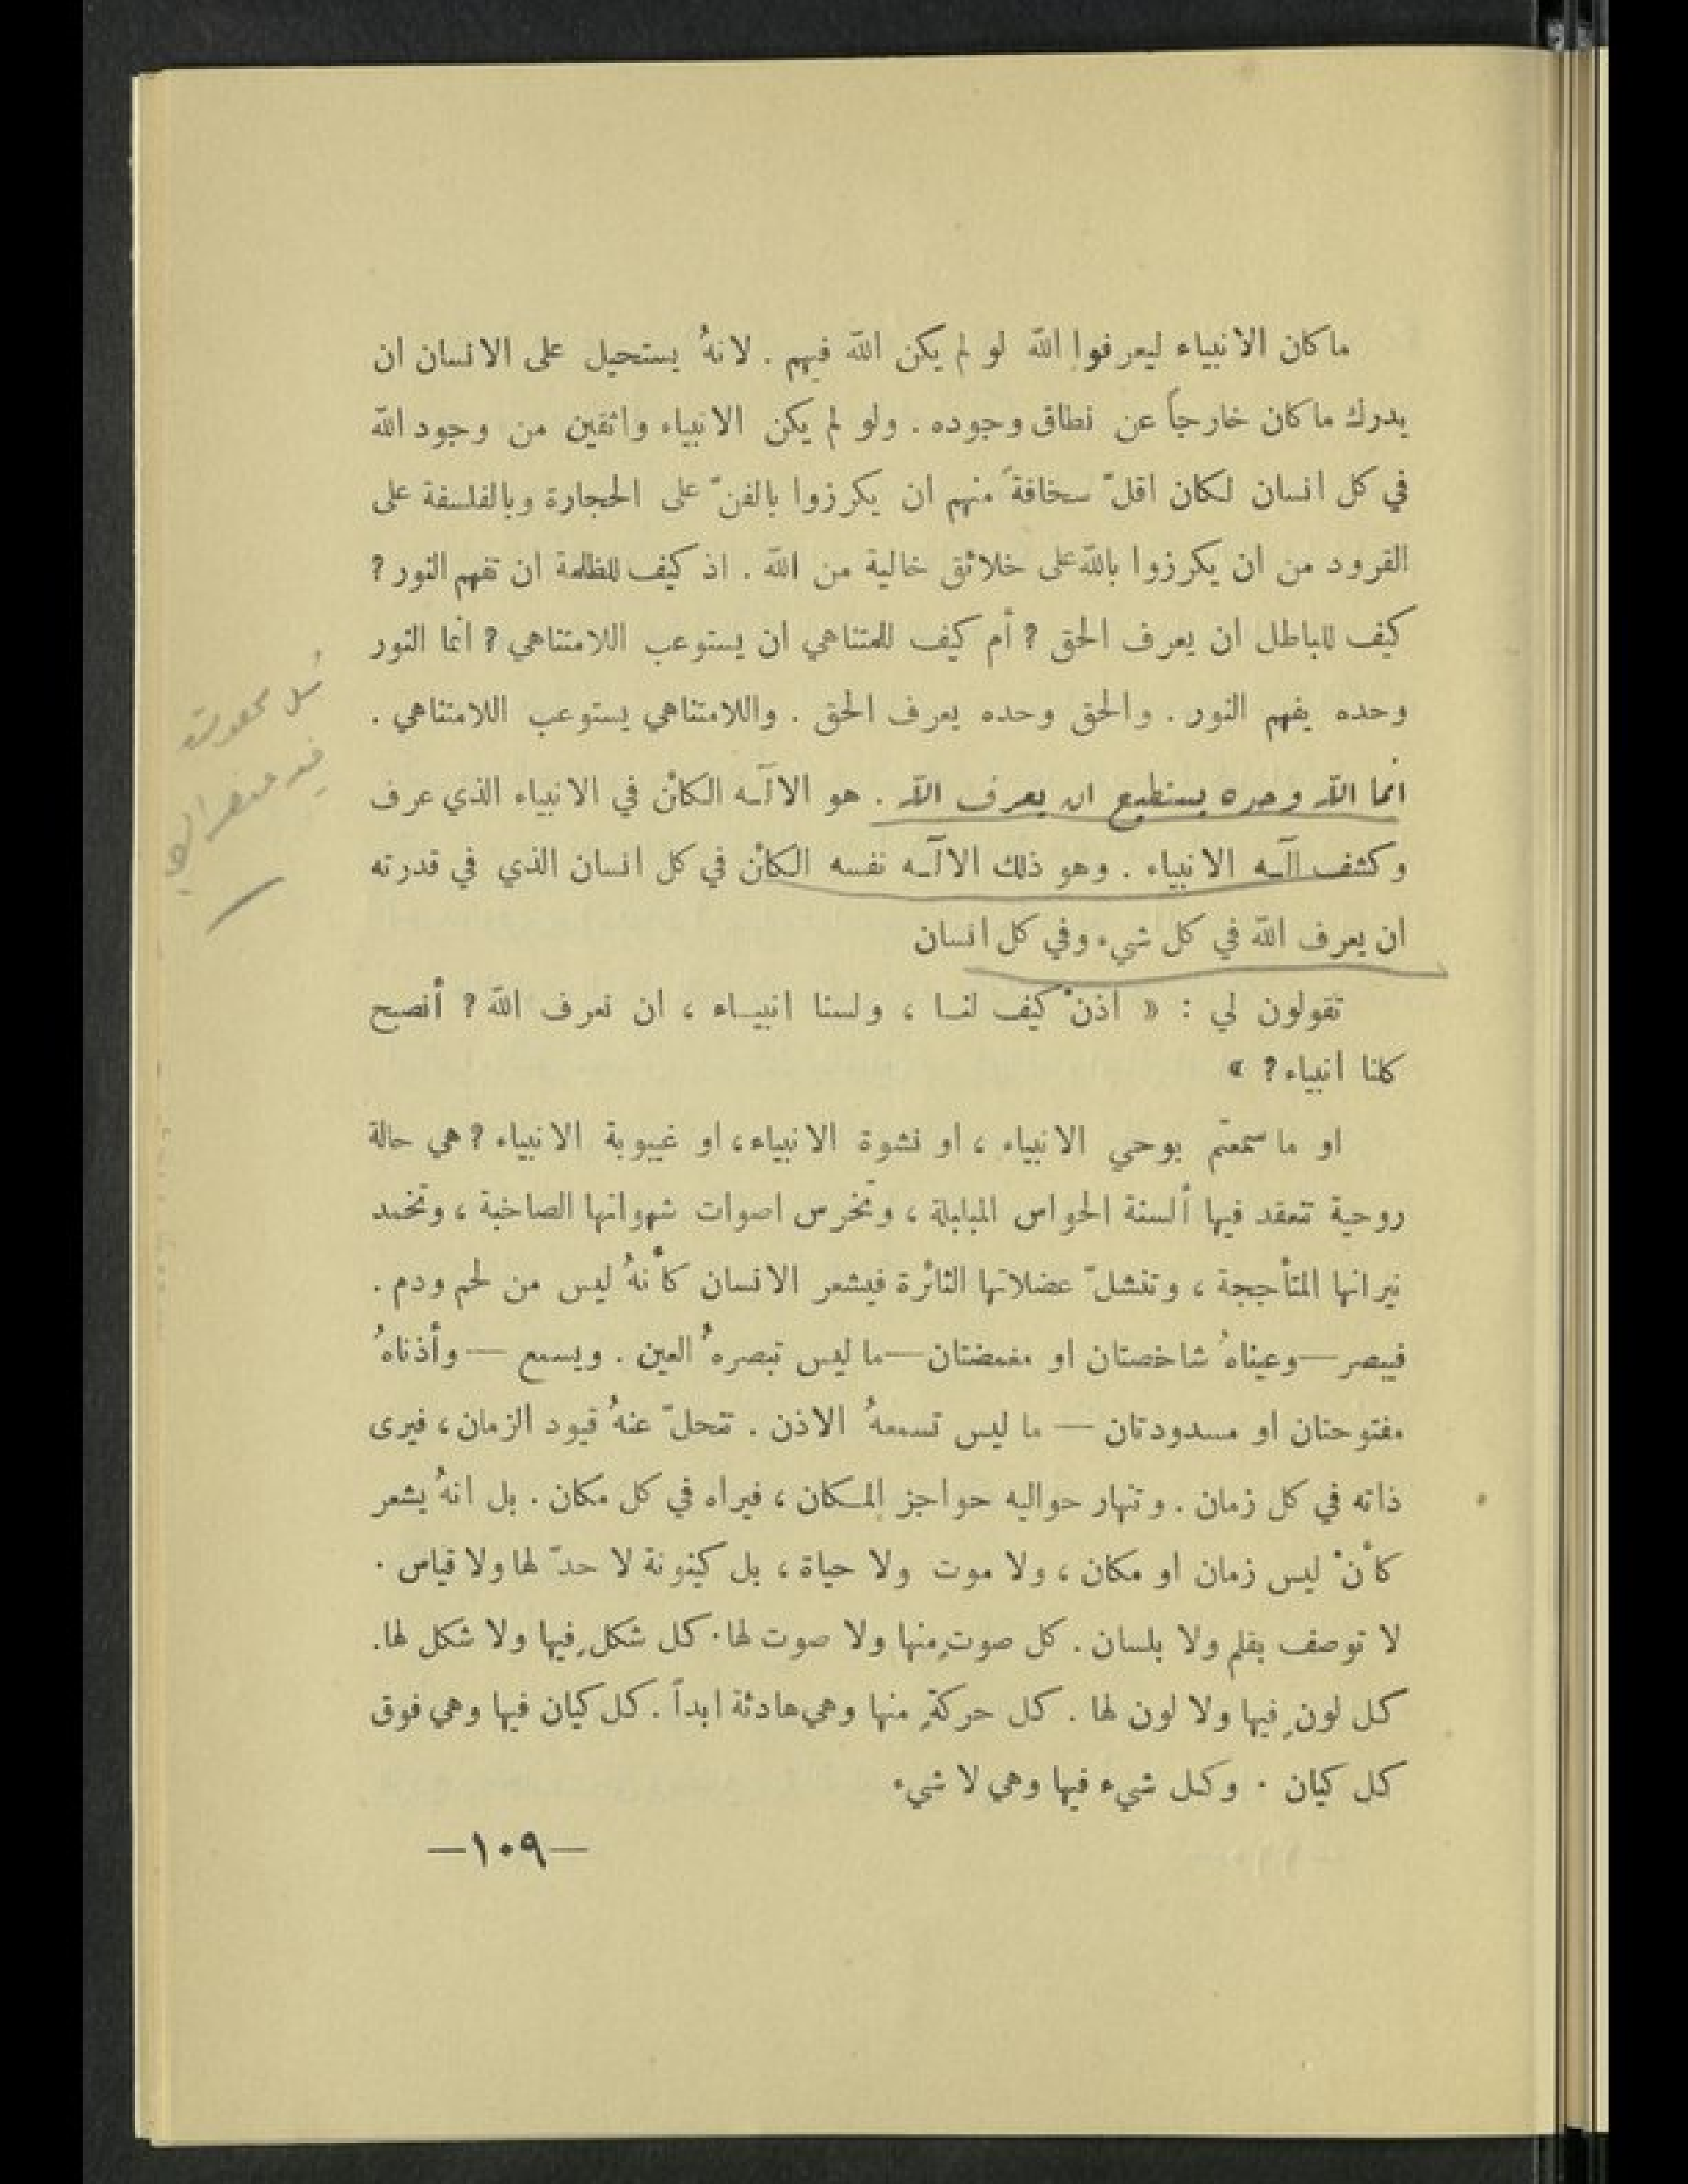 ما كان الانبياء ليعرفوا الله لو لم يكن الله فيهم . لانهُ يستحيل على الانسان ان
يدرك ما كان خارجاً عن نطاق وجوده . ولو لم يكن الانبياء واثقين من وجود الله
في كل انسان لكان اقلّ سخافةً منهم ان يكرزوا بالفنّ على الحجارة وبالفلسفة على
القرود من ان يكرزوا بالله على خلائق خالية من الله . اذ كيف للظلمة ان تفهم النور ؟
كيف للباطل ان يعرف الحق ؟ أم كيف للمتناهي ان يستوعب اللامتناهي ؟ انما النور
وحده يفهم النور . والحق وحده يعرف الحق . واللامتناهي يستوعب اللامتناهي .
انما الله وحده يستطيع ان يعرف الله . هو الالآـه الكائن في الانبياء الذي عرف
وكشف الآـه الانبياء . وهو ذلك الالآـه نفسه الكائن في كل انسان الذي في قدرته
ان يعرف الله في كل شيء وفي كل انسان
تقولون لي : « اذنْ كيف لنـا ، ولسنا انبيـاء ، ان نعرف الله ؟ أنصبح
كلنا انبياء ؟ »
او ما سمعتم بوحي الانبياء ، او نشوة الانبياء ، او غيبوبة الانبياء ؟ هي حالة
روحية تنعقد فيها ألسنة الحواس المبلبلة ، وتخرس اصوات شهواتها الصاخبة ، وتخمد
نيرانها المتأججة ، وتنشلّ عضلاتها الثائرة فيشعر الانسان كأنهُ ليس من لحم ودم .
فيبصر — وعيناهُ شاخصتان او مغمضتان — ما ليس تبصرهُ العين . ويسمع — وأذناهُ
مفتوحتان او مسدودتان — ما ليس تسمعهُ الاذن . تنحلّ عنهُ قيود الزمان ، فيرى
ذاته في كل زمان . وتنهار حواليه حواجز المـكان ، فيراه في كل مكان . بل انهُ يشعر
كأنْ ليس زمان او مكان ، ولا موت ولا حياة ، بل كينونة لا حدّ لها ولا قياس .
لا توصف بقلم ولا بلسان . كل صوتٍ منها ولا صوت لها . كل شكلٍ فيها ولا شكل لها .
كل لونٍ فيها ولا لون لها . كل حركةٍ منها وهي هادئة ابداً . كل كيان فيها وهي فوق
كل كيان . وكل شيء فيها وهي لا شيء
—١٠٩—